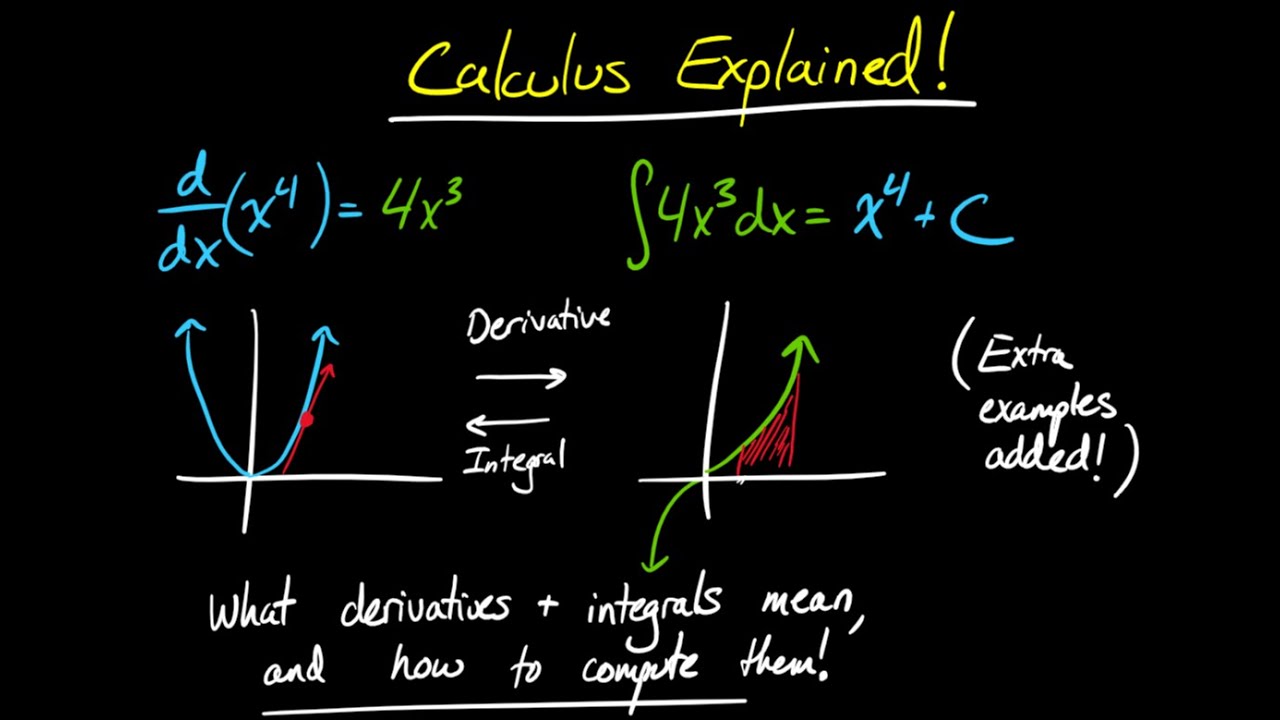 Calculus Explained!
d/dx(x⁴) = 4x³
∫4x³dx = x⁴ + C
Derivative
Integral
(Extra
examples
added!)
What derivatives + integrals mean,
and how to compute them!